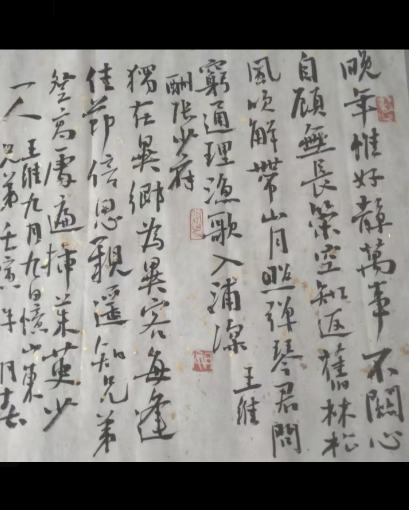 晚年惟好靜萬事不關心
自顧無長策空知返舊林松
風吹解帶山月照彈琴君問
窮通理漁歌入浦深 王維
酬張少府
獨在異鄉為異客每逢
佳節倍思親遙知兄弟
登高處遍插茱萸少
一人 王維九月九日憶山東
兄弟 壬寅年 月